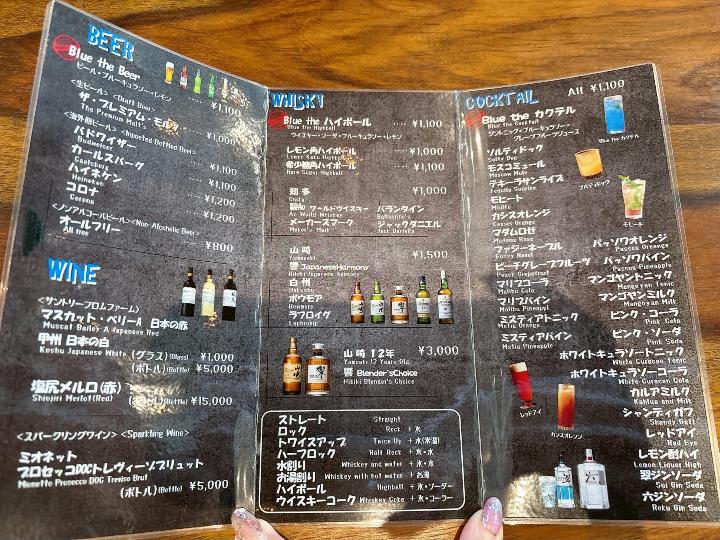 BEER
Blue the Beer ¥1,100
ビール・ブルーキュラソー・レモン
<生ビール> <Draft Beer>
ザ・プレミアム・モルツ ¥1,000
The Premium Malt's
<海外瓶ビール> <Imported Bottled Beer>
バドワイザー ¥1,100
Budweiser
カールスバーグ ¥1,100
Carlsberg
ハイネケン ¥1,200
Heineken
コロナ ¥1,200
Corona
<ノンアルコールビール> <Non-Alcoholic Beer>
オールフリー ¥800
All free
WINE
<サントリーフロムファーム>
マスカット・ベリーA 日本の赤
Muscat Bailey A Japanese Red
甲州 日本の白
Koshu Japanese White (グラス)(Glass) ¥1,000
(ボトル)(Bottle) ¥5,000
塩尻メルロ(赤)
Shiojiri Merlot(Red) (ボトル)(Bottle) ¥15,000
<スパークリングワイン> <Sparkling Wine>
ミオネット
プロセッコDOCトレヴィーゾブリュット
Mionetto Prosecco DOC Treviso Brut
(ボトル)(Bottle) ¥5,000
WHISKY
Blue the ハイボール ¥1,100
Blue the Highball
ウイスキー・ソーダ・ブルーキュラソー・レモン
レモン角ハイボール ¥1,000
Lemon Kaku Highball
希少糖角ハイボール ¥1,100
Rare Sugar Highball
知多 ¥1,000
Chita
碧Ao ワールドウイスキー バランタイン
Ao World Whiskey Ballantine's
メーカーズマーク ジャックダニエル
Maker's Mark Jack Daniel's
山崎 ¥1,500
Yamazaki
響 JapaneseHarmony
Hibiki Japanese harmony
白州
Hakushu
ボウモア
Bowmore
ラフロイグ
Laphroaig
山崎 12年 ¥3,000
Yamazaki 12 Years Old
響 Blender'sChoice
Hibiki Blender's Choice
ストレート Straight
ロック Rock +氷
トワイスアップ Twice Up +水(常温)
ハーフロック Half Rock +氷・水
水割り Whiskey and water +氷・水
お湯割り Whiskey with hot water +お湯
ハイボール Highball +氷・ソーダー
ウイスキーコーク Whiskey Coke +氷・コーラー
COCKTAIL All ¥1,100
Blue the カクテル
Blue the Cocktail
ジン・ニィク・ブルーキュラソー・
グレープフルーツジュース
Blue the カクテル
ソルティドック
Salty Dog
モスコミュール
Moscow Mule
テキーラサンライズ
Tequila Sunrise
モヒート
Mojito
カシスオレンジ
Cassis Orange
マダムロゼ
Madame Rose
ファジーネーブル
Fuzzy Navel
ピーチグレープフルーツ
Peach Grapefruit
マリブコーラ
Malibu Cola
マリブパイン
Malibu Pine
ミスティアトニック
Mistia Tonic
ミスティアパイン
Mistia Pineapple
ソルティドック
モヒート
パッソワオレンジ
Passoa Orange
パッソワパイン
Passoa Pineapple
マンゴヤントニック
Mangoyan Tonic
マンゴヤンミルク
Mangoyan Milk
ピンク・コーラ
Pink Cola
ピンク・ソーダ
Pink Soda
ホワイトキュラソートニック
White Curacao Tonic
ホワイトキュラソーコーラ
White Curacao Cola
カルーアミルク
Kahlua and Milk
シャンディガフ
Shandy Gaff
レッドアイ
Red Eye
レモン酎ハイ
Lemon Liquor High
翠ジンソーダ
Sui Gin Soda
六ジンソーダ
Roku Gin Soda
レッドアイ
カシスオレンジ